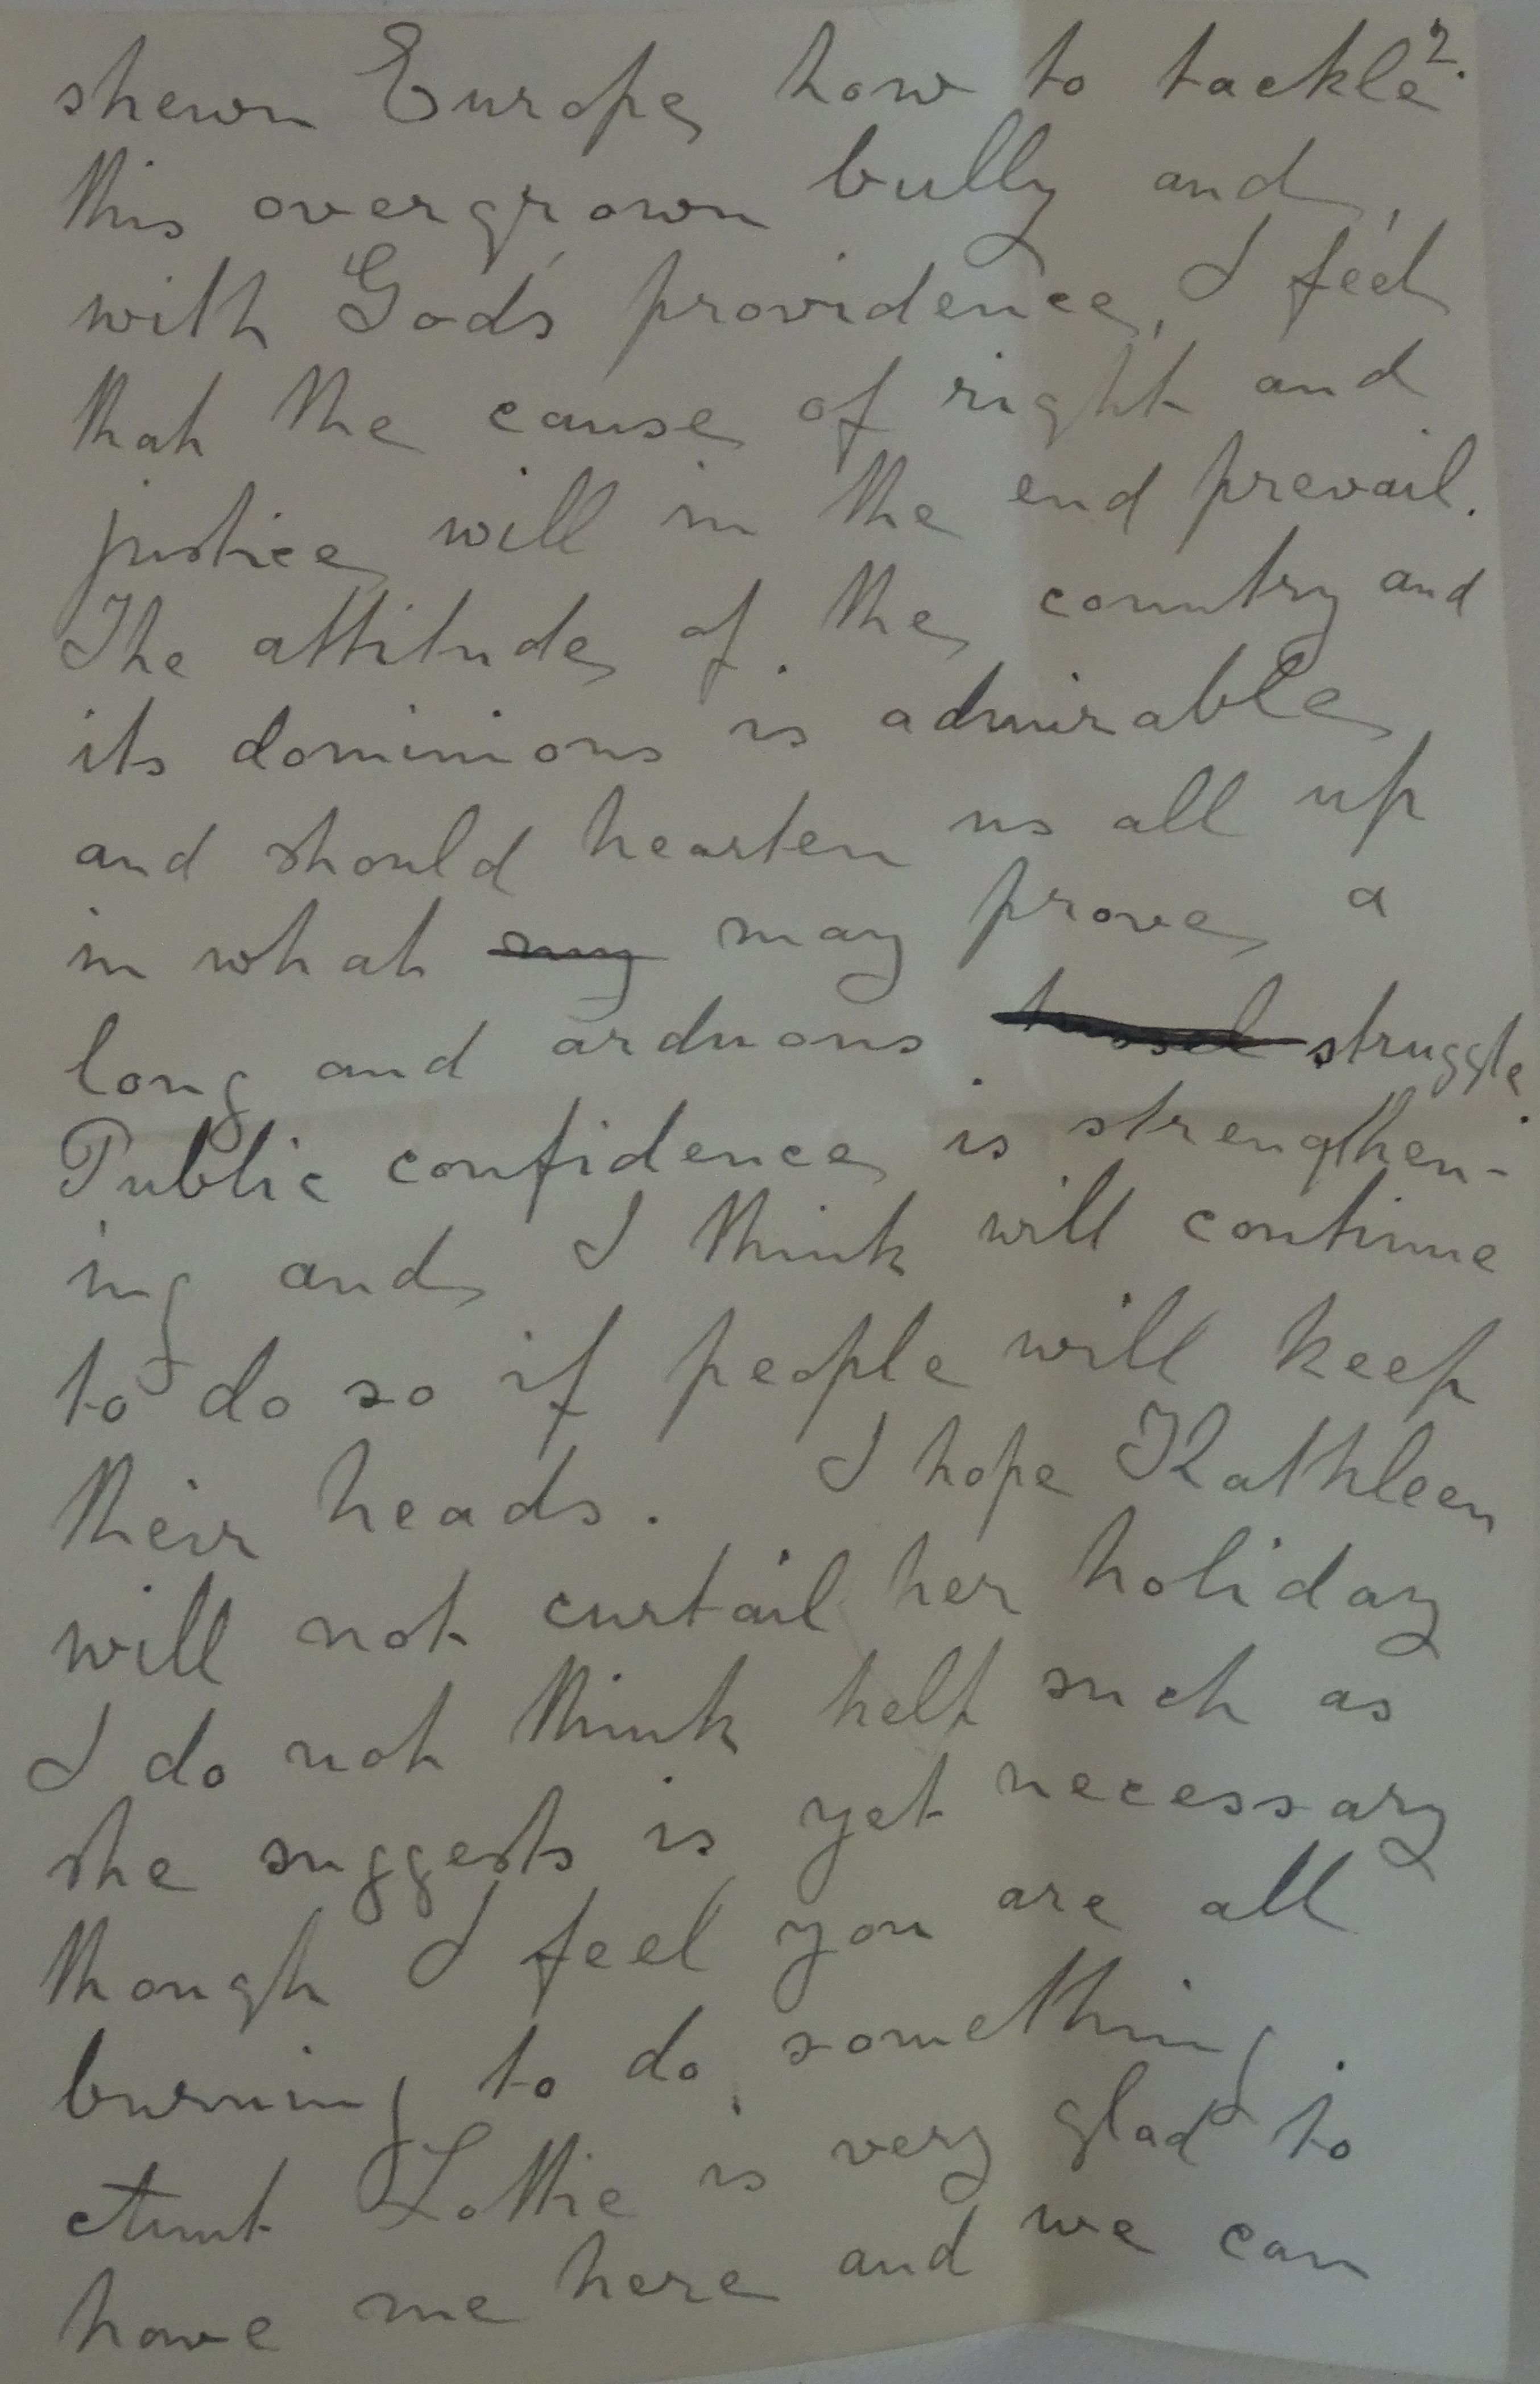 2.
shewn Europe how to tackle
this overgrown bully and,
with God's providence, I feel
that the cause of right and
justice will in the end prevail.
The attitude of the country and
its dominions is admirable
and should hearten us all up
in what my may prove a
long and arduous tussel struggle.
Public confidence is strengthen-
ing and I think will continue
to do so if people will keep
their heads. I hope Kathleen
will not curtail her holiday
I do not think help such as
she suggests is yet necessary
though I feel you are all
burning to do something.
Aunt Lottie is very glad to
have me here and we can